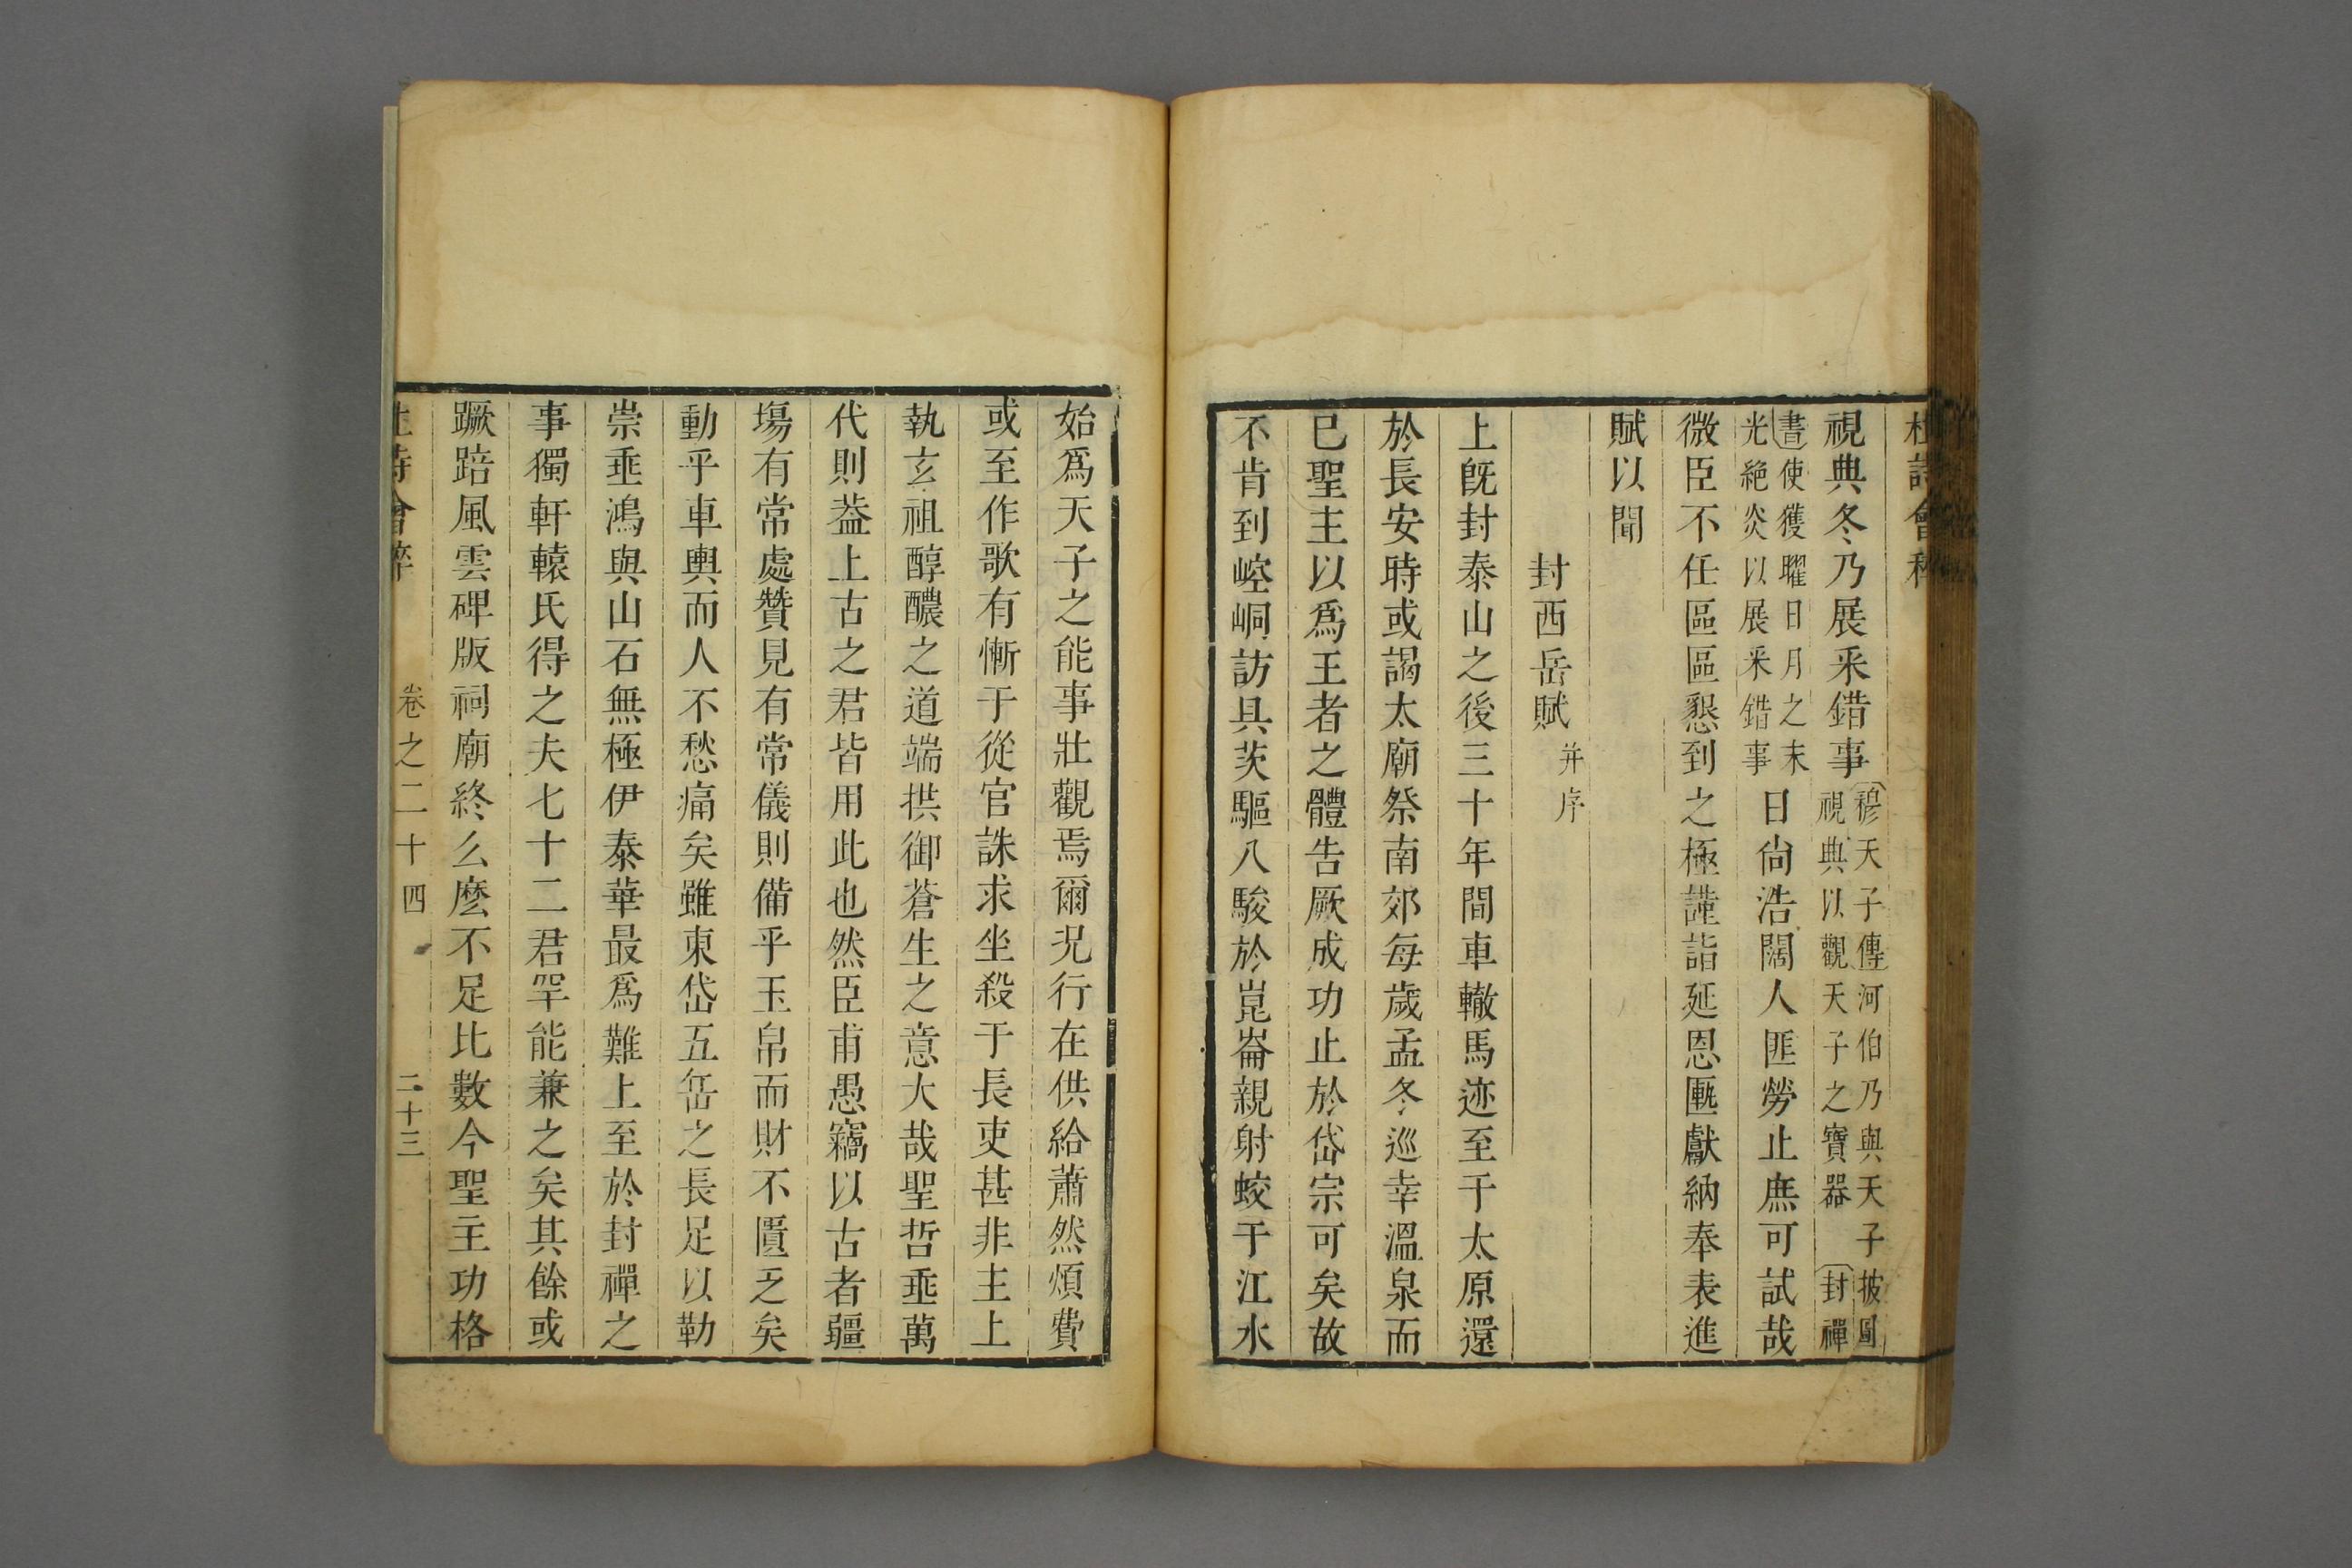 杜詩會稡
視典冬乃展采錯事
穆天子傳河伯乃與天子披圖
視典以觀天子之寶器 封禪
書使獲曜日月之末
光絶炎以展采錯事
日尙浩闊人匪勞止庶可試哉
微臣不任區區懇到之極謹詣延恩匭獻納奉表進
賦以聞
封西岳賦 并序
上旣封泰山之後三十年間車轍馬迹至于太原還
於長安時或謁太廟祭南郊每歲孟冬巡幸溫泉而
已聖主以爲王者之體告厥成功止於岱宗可矣故
不肯到崆峒訪具茨驅八駿於崑崙親射蛟于江水
始爲天子之能事壯觀焉爾況行在供給蕭然煩費
或至作歌有慚于從官誅求坐殺于長吏甚非主上
執玄祖醇醲之道端拱御蒼生之意大哉聖哲垂萬
代則葢上古之君皆用此也然臣甫愚竊以古者疆
場有常處贊見有常儀則備乎玉帛而財不匱乏矣
動乎車輿而人不愁痛矣雖東岱五岳之長足以勒
崇垂鴻與山石無極伊泰華最爲難上至於封禪之
事獨軒轅氏得之夫七十二君罕能兼之矣其餘或
蹶踣風雲碑版祠廟終么麼不足比數今聖主功格
杜詩會稡 卷之二十四 二十三